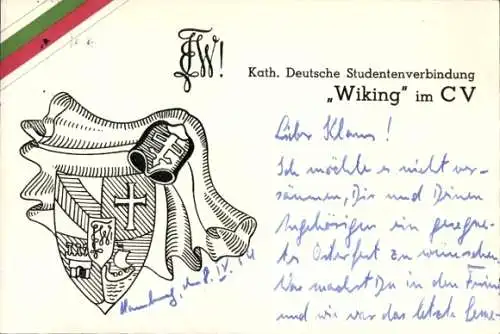 W!
Kath. Deutsche Studentenverbindung
„Wiking" im CV
Lieber Klaus!
Ich möchte es nicht ver-
säumen, Dir und Deinen
Angehörigen ein gesegne-
tes Osterfest zu wünschen.
Was machst Du in den
und wie war das letzte Seme-
W
Hamburg, den 8. IV.